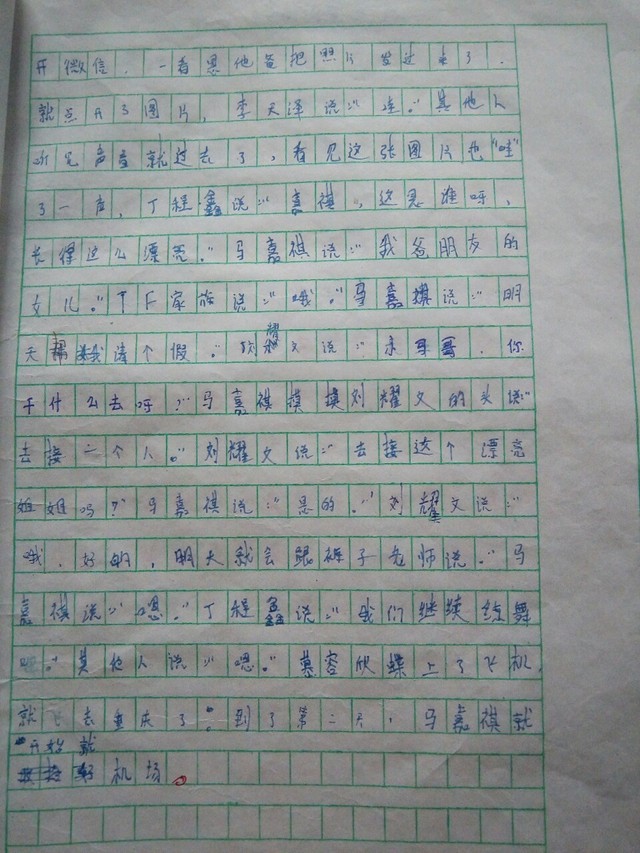 开微信，一看是他爸把照片发过来了，
就点开了图片，李天泽说:“哇。”其他人
听见声音就过去了，看见这张图片也“哇”
了一声，丁程鑫说:“嘉祺，这是谁呀，
长得这么漂亮。”马嘉祺说:“我爸朋友的
女儿。”TF家族说:“哦。”马嘉祺说:“明
天帮我请个假。”刘耀文说:“马哥哥，你
干什么去呀?”马嘉祺摸摸刘耀文的头说:“
去接一个人。”刘耀文说:“去接这个漂亮
姐姐吗?”马嘉祺说:“是的。”刘耀文说:“
哦，好的，明天就会跟裤子老师说。”马
嘉祺说:“嗯。”丁程鑫说:“我们继续练舞
吧。”其他人说:“嗯。”慕容欣蝶上了飞机，
就飞去重庆了。到了第二天，马嘉祺就
开始就
机场。